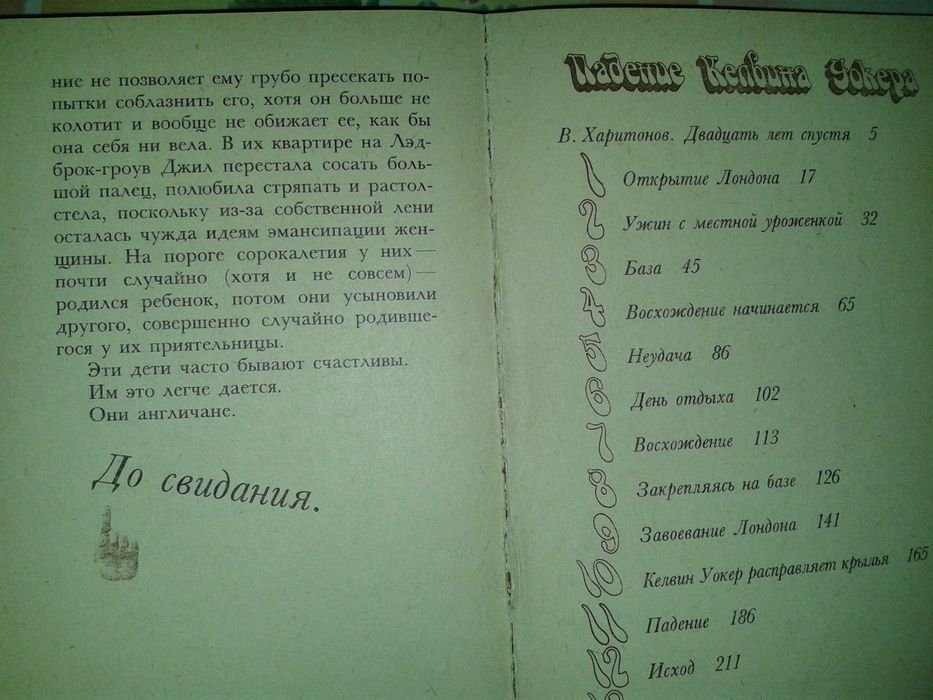 ние не позволяет ему грубо пресекать по-
пытки соблазнить его, хотя он больше не
колотит и вообще не обижает ее, как бы
она себя ни вела. В их квартире на Лэд-
брок-гроув Джил перестала сосать боль-
шой палец, полюбила стряпать и растол-
стела, поскольку из-за собственной лени
осталась чужда идеям эмансипации жен-
щины. На пороге сорокалетия у них —
почти случайно (хотя и не совсем) —
родился ребенок, потом они усыновили
другого, совершенно случайно родивше-
гося у их приятельницы.
Эти дети часто бывают счастливы.
Им это легче дается.
Они англичане.
До свидания.
Падение Келвина Уокера
В. Харитонов. Двадцать лет спустя 5
1 Открытие Лондона 17
2 Ужин с местной уроженкой 32
3 База 45
4 Восхождение начинается 65
5 Неудача 86
6 День отдыха 102
7 Восхождение 113
8 Закрепляясь на базе 126
9 Завоевание Лондона 141
10 Келвин Уокер расправляет крылья 165
11 Падение 186
12 Исход 211